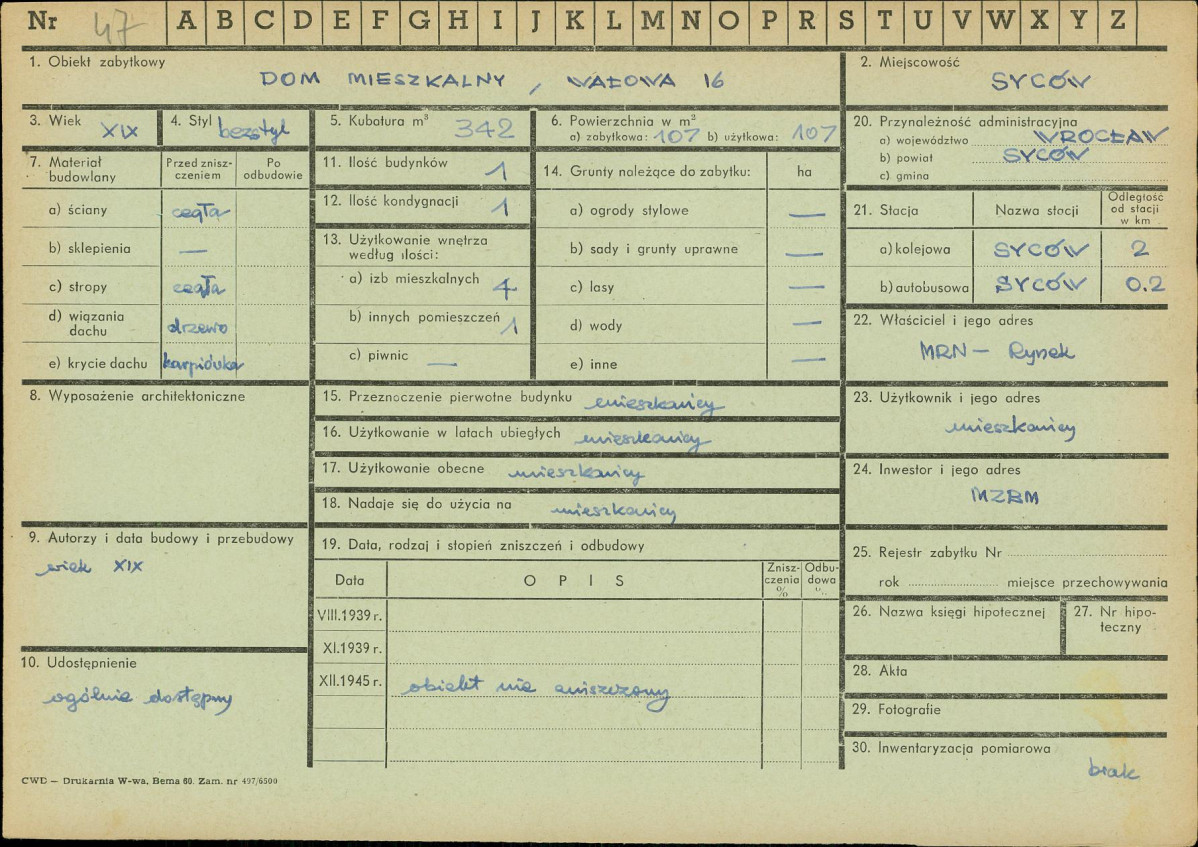 Nr 47 A B C D E F G H I J K L M N O P R S T U V W X Y Z
1. Obiekt zabytkowy
DOM MIESZKALNY, WAŁOWA 16
2. Miejscowość
SYCÓW
3. Wiek XIX
4. Styl bezstyl
5. Kubatura m³ 342
6. Powierzchnia w m²
a) zabytkowa: 107 b) użytkowa: 107
7. Materiał budowlany
Przed zniszczeniem
Po odbudowie
a) ściany cegła
b) sklepienia —
c) stropy cegła
d) wiązania dachu drzewo
e) krycie dachu karpiówka
8. Wyposażenie architektoniczne
9. Autorzy i data budowy i przebudowy
wiek XIX
10. Udostępnienie
ogólnie dostępny
11. Ilość budynków 1
12. Ilość kondygnacji 1
13. Użytkowanie wnętrza
według ilości:
a) izb mieszkalnych 4
b) innych pomieszczeń 1
c) piwnic —
14. Grunty należące do zabytku: ha
a) ogrody stylowe —
b) sady i grunty uprawne —
c) lasy —
d) wody —
e) inne —
15. Przeznaczenie pierwotne budynku mieszkanicy
16. Użytkowanie w latach ubiegłych mieszkanicy
17. Użytkowanie obecne mieszkanicy
18. Nadaje się do użycia na mieszkanicy
19. Data, rodzaj i stopień zniszczeń i odbudowy
Data OPIS Zniszczenia % Odbudowa %
VIII.1939 r.
XI.1939 r.
XII.1945 r. obiekt nie zniszczony
20. Przynależność administracyjna
a) województwo WROCŁAW
b) powiat SYCÓW
c) gmina
21. Stacja Nazwa stacji Odległość od stacji w km
a) kolejowa SYCÓW 2
b) autobusowa SYCÓW 0.2
22. Właściciel i jego adres
MRN – Rynek
23. Użytkownik i jego adres
mieszkanicy
24. Inwestor i jego adres
MZBM
25. Rejestr zabytku Nr
rok miejsce przechowywania
26. Nazwa księgi hipotecznej
27. Nr hipoteczny
28. Akta
29. Fotografie
30. Inwentaryzacja pomiarowa
brak
CWD — Drukarnia W-wa, Bema 60. Zam. nr 497/6500